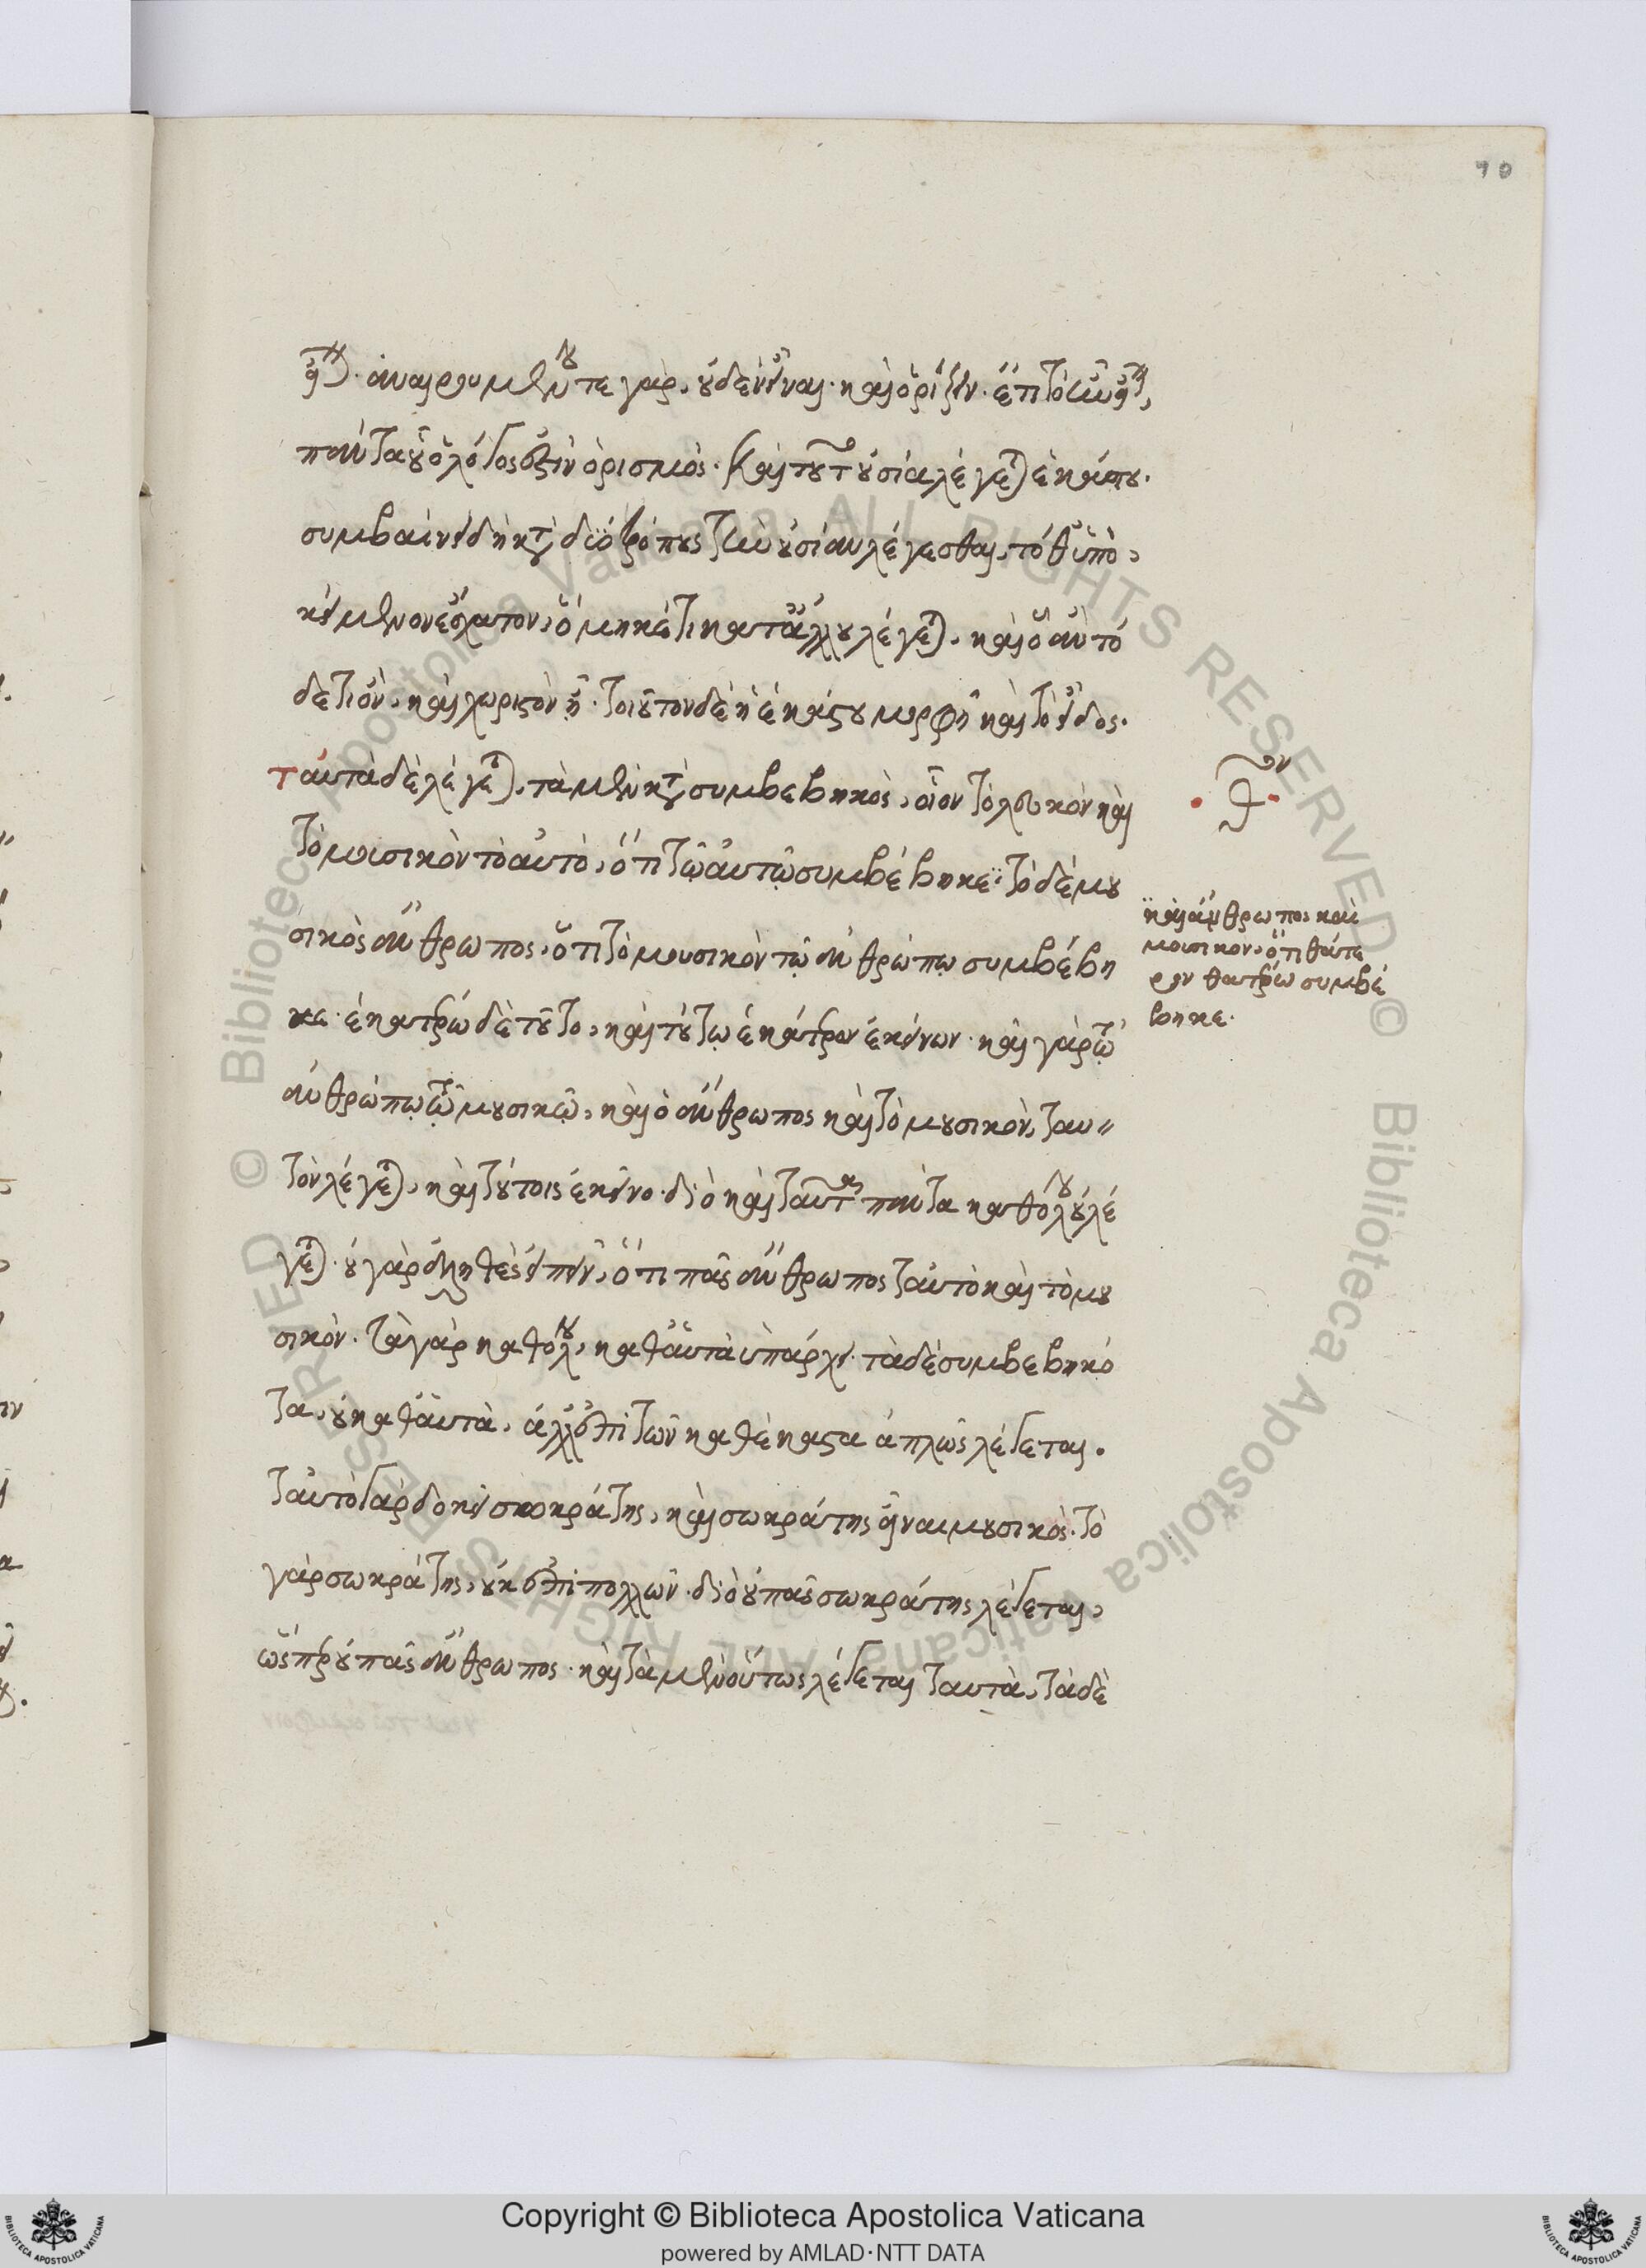 εἶναι· ἀναιρουμένου τε γὰρ, οὐδὲν εἶναι· καὶ ὁρίζειν. ἔτι τὸ τί ἦν εἶναι,
πάντα οὗ ὁ λόγος ἐστὶν ὁρισμὸς. καὶ τοῦτο οὐσία λέγεται ἑκάστου.
συμβαίνει δὴ κατὰ δύο τρόπους τὴν οὐσίαν λέγεσθαι, τό θ' ὑπο
κείμενον ἔσχατον, ὃ μηκέτι κατ' ἄλλου λέγεται, καὶ ὃ ἂν τό
δε τι ὂν, καὶ χωριστὸν ᾖ. τοιοῦτον δὲ ἡ ἑκάστου μορφὴ καὶ τὸ εἶδος.
ταυτὰ δὲ λέγεται, τὰ μὲν κατὰ συμβεβηκὸς, οἷον τὸ λευκὸν καὶ
τὸ μουσικὸν τὸ αὐτὸ, ὅτι τῷ αὐτῷ συμβέβηκε· τὸ δὲ μου
σικὸς ἄνθρωπος, ὅτι τὸ μουσικὸν τῷ ἀνθρώπῳ συμβέβη
κε. ἑκατέρῳ δὲ τοῦτο, καὶ τούτῳ ἑκάτερον ἐκείνων. καὶ γὰρ τῷ
ἀνθρώπῳ τῷ μουσικῷ, καὶ ὁ ἄνθρωπος καὶ τὸ μουσικὸν, ταυ
τὸν λέγεται, καὶ τούτοις ἐκεῖνο. διὸ καὶ ταῦτα πάντα καθόλου οὐ λέ
γεται. οὐ γὰρ ἀληθὲς εἰπεῖν, ὅτι πᾶς ἄνθρωπος ταὐτὸ καὶ τὸ μου
σικόν. τὰ γὰρ καθόλου, καθ' αὑτὰ ὑπάρχει. τὰ δὲ συμβεβηκό
τα, οὐ καθ' αὑτὰ, ἀλλ' ἐπὶ τῶν καθέκαστα ἁπλῶς λέγεται.
ταὐτὸ γὰρ δοκεῖ σωκράτης, καὶ σωκράτης εἶναι μουσικὸς. τὸ
γὰρ σωκράτης, οὐκ ἐπὶ πολλῶν. διὸ οὐ πᾶς σωκράτης λέγεται,
ὥσπερ οὐ πᾶς ἄνθρωπος. καὶ τὰ μὲν οὕτως λέγεται ταυτὰ, τὰ δὲ
καὶ ἄνθρωπος καὶ
μουσικον, ὅτι θάτε
ρον θατέρῳ συμβέ
βηκε.
70
© Biblioteca Apostolica Vaticana ALL RIGHTS RESERVED
© Biblioteca Apostolica Vaticana ALL RIGHTS RESERVED
Copyright © Biblioteca Apostolica Vaticana
powered by AMLAD·NTT DATA
BIBLIOTECA APOSTOLICA VATICANA
BIBLIOTECA APOSTOLICA VATICANA